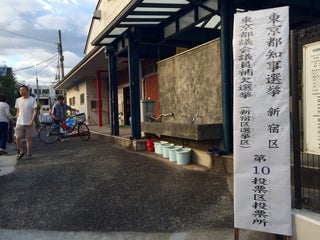 東京都知事選挙 新宿区 第10投票区投票所
東京都議会議員補欠選挙(新宿区選挙区)